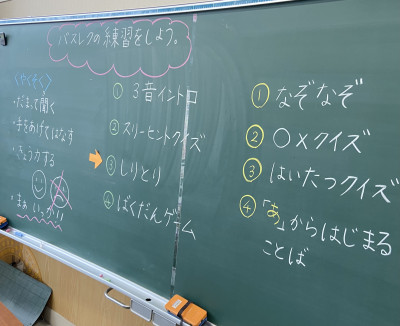 バスレクの練習をしよう。
〈やくそく〉
・だまって聞く
・手をあげてはなす
・きょう力する
・まぁいっか!!
① 3音イントロ
② スリーヒントクイズ
③ しりとり
④ ばくだんゲーム
① なぞなぞ
② ○×クイズ
③ はいたつクイズ
④ 「あ」からはじまる
ことば